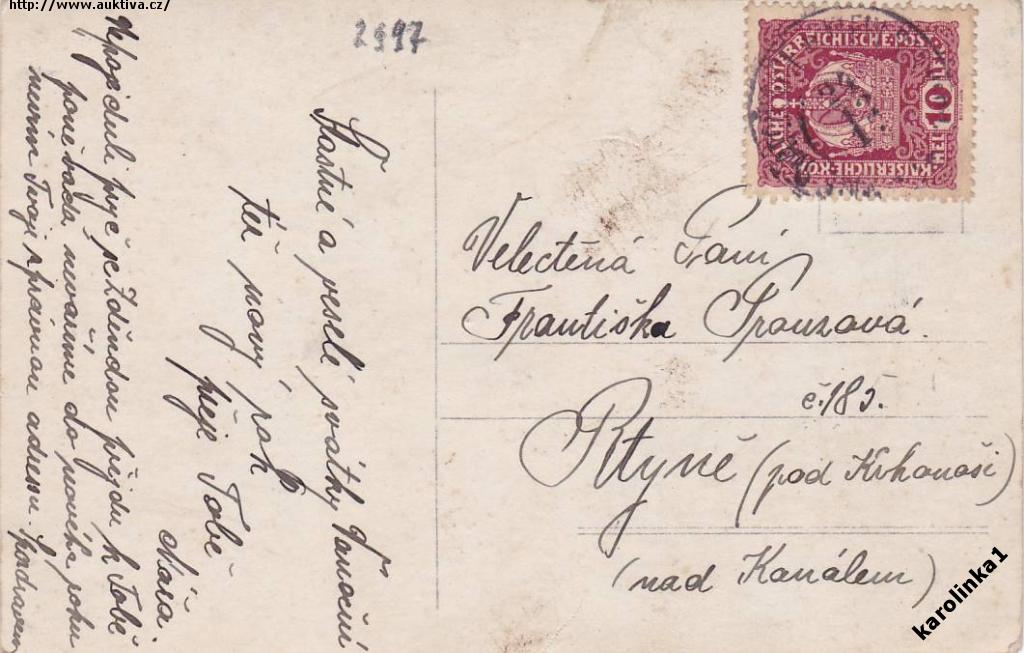 http://www.auktiva.cz/
2997
Šťastné a veselé svátky Vánoční
též nový rok
přeje Tobě
Mářa.
Nepojeduli prýč se Zděndou přijdu k Tobě
poněvadž nevařime do nového roku
nevím Tvoji spravnou adressu. Pozdraven
KAISERLICHE KÖNIGLICHE ÖSTERREICHISCHE POST
10
HELLER
Velectěná Paní
Františka Prouzová.
č. 185.
Rtyně (pod Krkonoši)
(nad Kanálem)
karolinka1